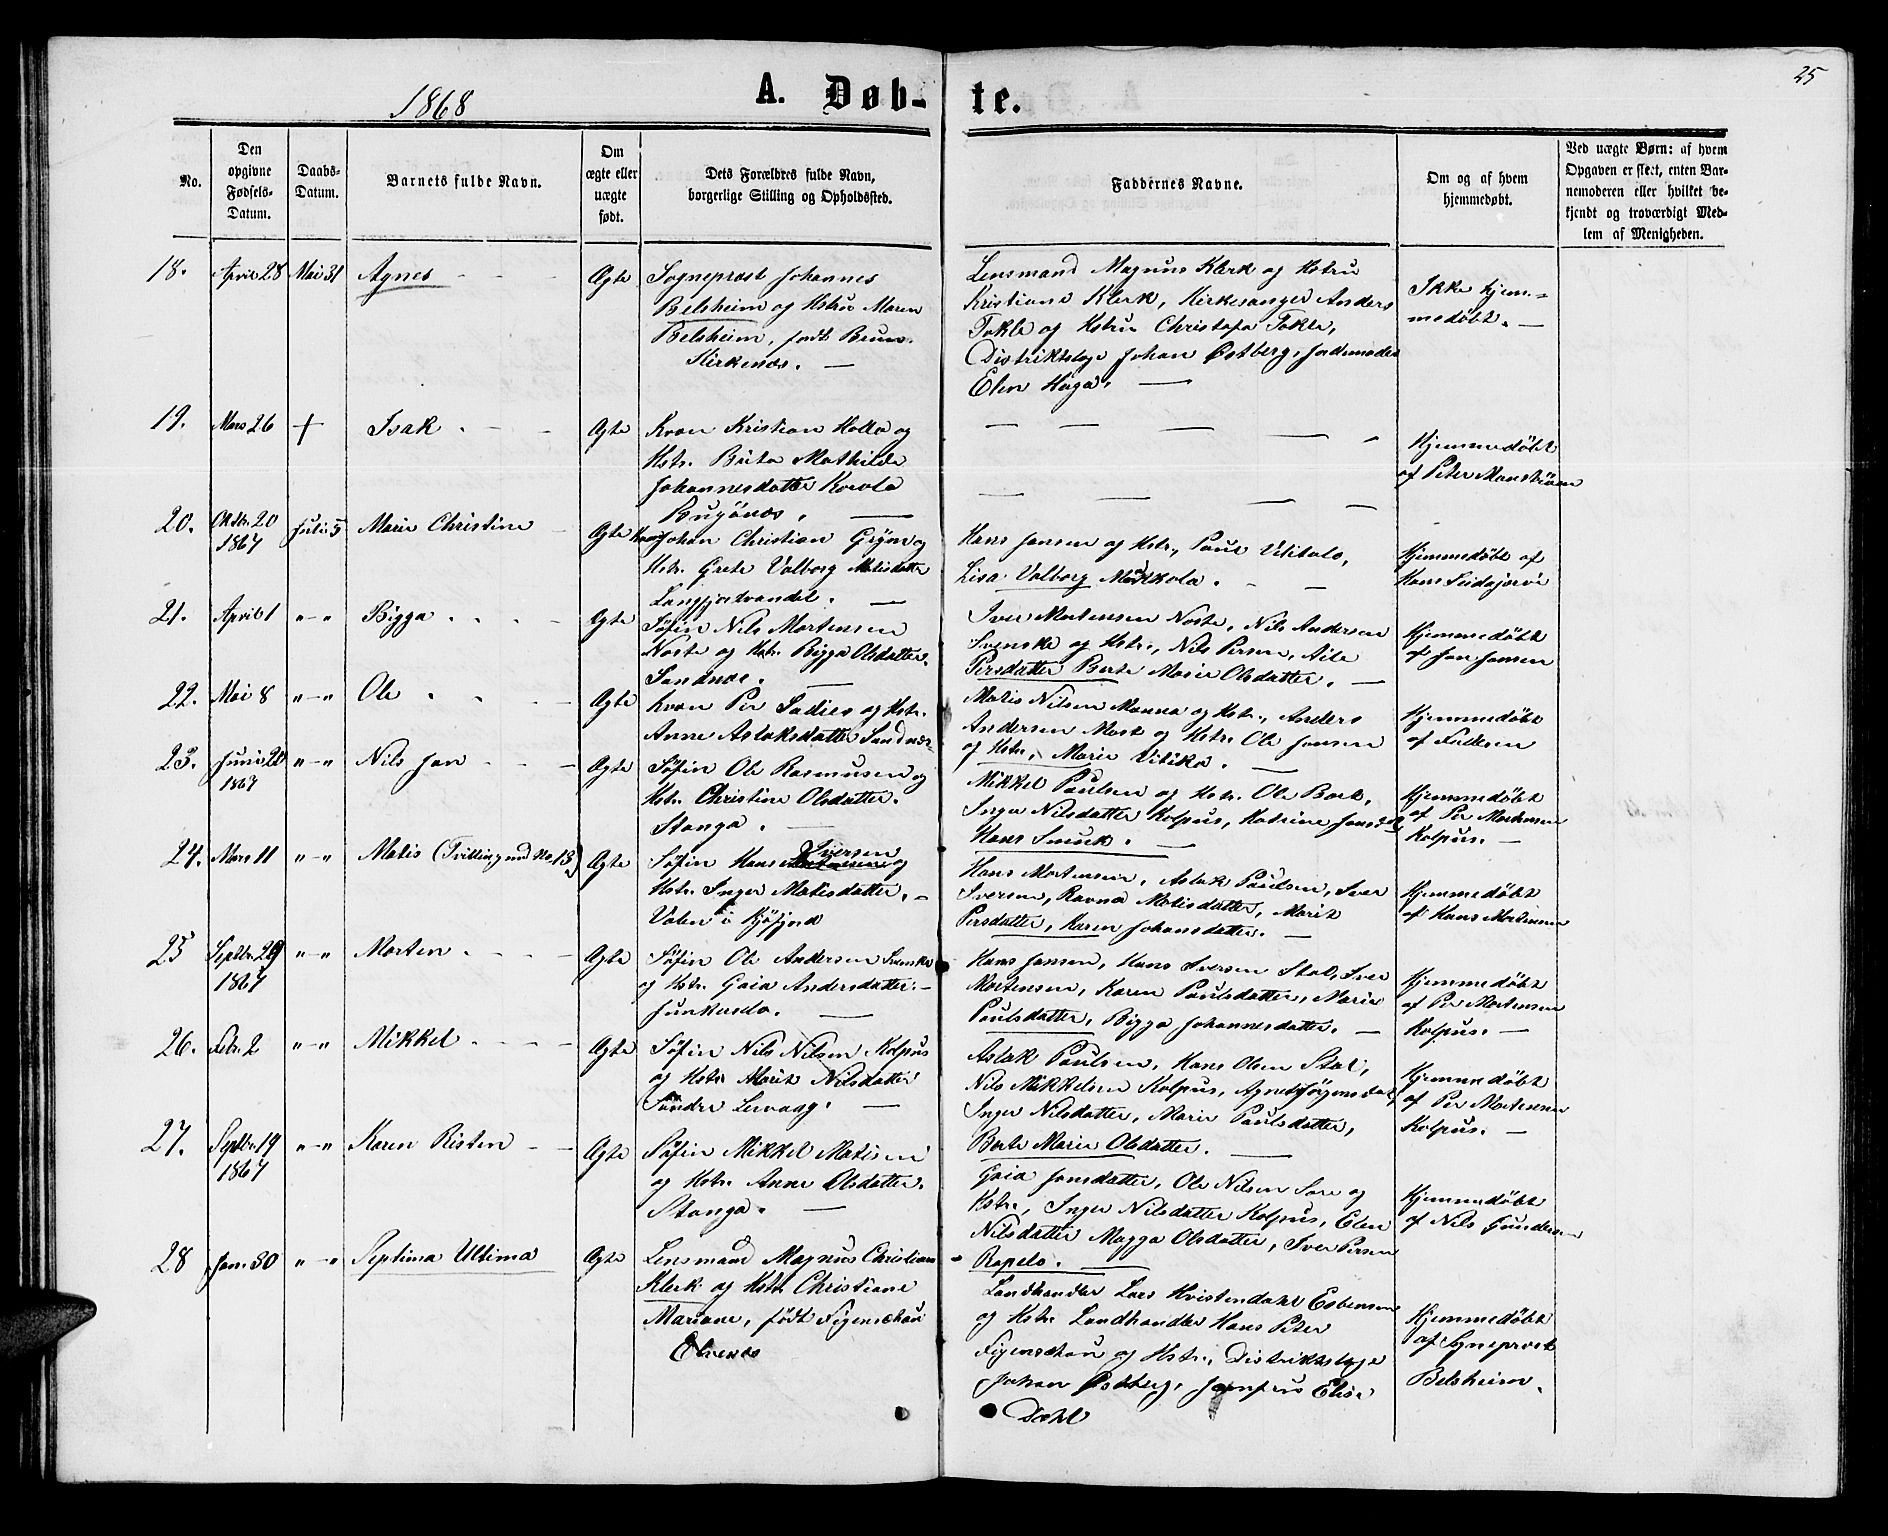 25
1868
A. Døb- te.
No.
Den opgivne Fødsels-Datum.
Daabs-Datum.
Barnets fulde Navn.
Om ægte eller uægte født.
Dets Forældres fulde Navn, borgerlige Stilling og Opholdssted.
Faddernes Navne.
Om og af hvem hjemmedøbt.
Ved uægte Børn: af hvem Opgaven er skeet, enten Barnemoderen eller hvilket bekjendt og troværdigt Medlem af Menigheden.
18. April 28 Mai 31 Agnes - - - Ægte
Sognepræst Johannes
Belsheim og Hstru Maren
Belsheim, født Brun.
Kirkenæs. —
Lensmand Magnus Klerk og Hstru
Kristiane Klerk, Kirkesanger Anders
Tokle og Hstru Christofa Tokle,
Distriktslæge Johan Østberg, Jordemoder
Elen Haga. —
Ikke hjem-
medøbt. —
19. Mars 26 + Isak - - - Ægte
Kvæn Kristian Holla og
Hstr. Brita Mathilde
Johannesdatter Korvola
Bugønæs. —
Hjemmedøbt
af Peter Manström
20. Oktbr. 20 1867 Juli 5 Marie Christine - Ægte
Kvæn Johan Christian Gryn og
Hstr. Grete Valborg Matisdatter
Langfjordvandet. —
Hans Jansen og Hstr., Paul Ylitalo,
Lisa Valborg Markkola. - -
Hjemmedøbt af
Hans Seidajervi
21. April 1 "-" Bigga - - - - Ægte
Søfin Nils Mortensen
Noste og Hstr. Bigga Olsdatter.
Sandnæs. —
Iver Mortensen Noste, Nils Andersen
Svenske og Hstr., Nils Persen, Aile
Persdatter Berte Marie Olsdatter. —
Hjemmedøbt
af Jon Jonsen
22. Mai 8 "-" Ole - - - - Ægte
Kvæn Per Sadies og Hstr.
Anne Aslaksdatter Sandnæs
Matis Nilsen Manna og Hstr., Anders
Andersen Mosk og Hstr. Ole Jonsen
og Hstr., Marie Vibika. —
Hjemmedøbt
af Faderen
23. Juni 20 1867 "-" Nils Jon - - - Ægte
Søfin Ole Rasmusen og
Hstr. Christine Olsdatter.
Stonga. —
Mikkel Paulsen og Hstr. Ole Bork,
Inger Nilsdatter Kolpus, Katrine Jonsd.
Hans Smuk. —
Hjemmedøbt
af Per Mortensen
Kolpus. —
24. Mars 11 "-" Matis (Tvilling med No. 13) Ægte
Søfin Hans Iversen og
Hstr. Inger Matisdatter. -
Valen i Kjøfjord
Hans Mortensen, Aslak Paulsen, Iver
Iversen, Ravna Matisdatter, Marit
Persdatter, Karen Johansdatter. —
Hjemmedøbt
af Hans Mortensen
25 Septbr. 29 1867 "-" Morten - - - - Ægte
Søfin Ole Andersen Svenske
og Hstr. Gaia Andersdatter. -
Junkersdo. —
Hans Jansen, Hans Iversen Stal, Iver
Mortensen, Karen Paulsdatter, Marie
Paulsdatter, Bigga Johannesdatter. —
Hjemmedøbt
af Per Mortensen
Kolpus. —
26. Febr. 2 "-" Mikkel - - - - Ægte
Søfin Nils Nilsen Kolpus
og Hstr. Marit Nilsdatter
Søndre Lervaag. —
Aslak Paulsen, Hans Olsen Stal,
Nils Mikkelsen Kolpus, Agnes Jørgensdat.
Inger Nilsdatter, Marie Paulsdatter,
Berte Marie Olsdatter. —
Hjemmedøbt
af Per Mortensen
Kolpus. —
27. Septbr. 19 1867 "-" Karen Risten - - Ægte
Søfin Mikkel Matisen
og Hstr. Anne Olsdatter.
Stonga. —
Gaia Jonsdatter, Ole Nilsen Sare og
Hstr., Inger Nilsdatter Kolpus, Elen
Nilsdatter Magga Olsdatter, Iver Persen
Rapelo. —
Hjemmedøbt
af Nils Gundersen
28 Jan. 30 "-" Septima Ultima Ægte
Lensmand Magnus Christian
Klerk og Hstr. Christiane
Mariane, født Figenschau
Elvenæs
Landhandler Lars Hvistendahl Esbensen
og Hstr. Landhandler Hans Peter
Figenschau og Hstr., Distriktslæge
Johan Østberg, Jomfrus Elise
Dahl
Hjemmedøbt
af Sognepræst
Belsheim.